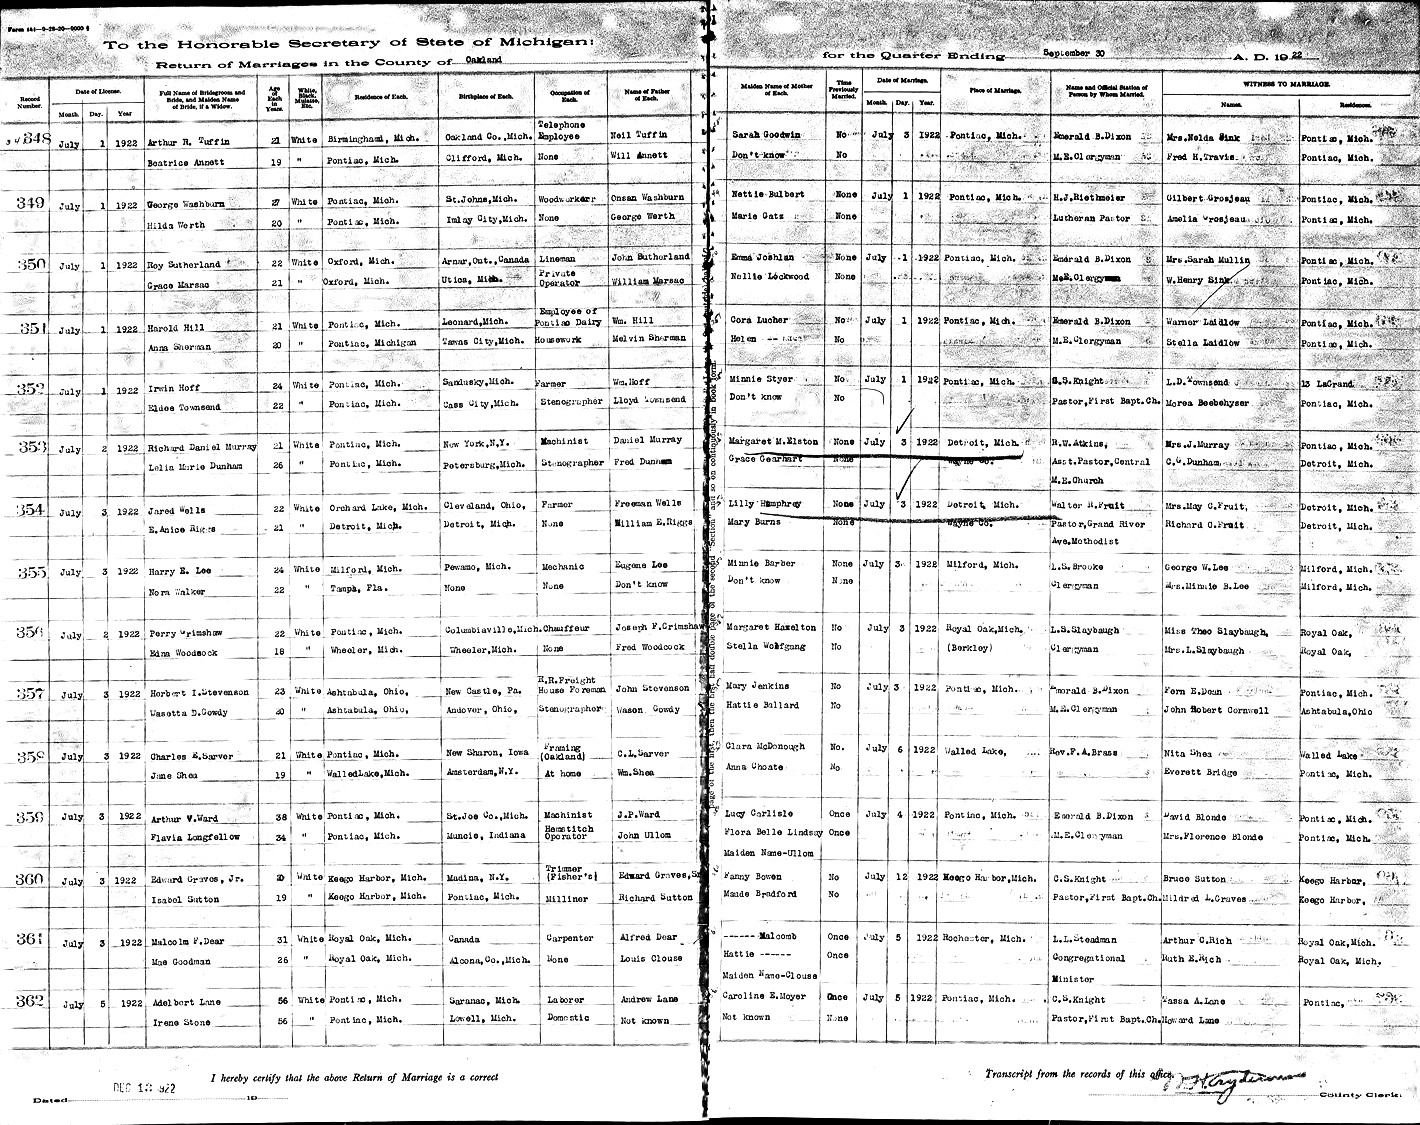 Form 141—9-28-20—9000
To the Honorable Secretary of State of Michigan:
Return of Marriages in the County of Oakland
for the Quarter Ending September 30 A. D. 19 22
Record Number. Date of License. Month. Day. Year Full Name of Bridegroom and Bride, and Maiden Name of Bride, if a Widow. Age of Each in Years. White, Black, Mulatto, Etc. Residence of Each. Birthplace of Each. Occupation of Each. Name of Father of Each. Maiden Name of Mother of Each. Time Previously Married. Date of Marriage. Month. Day. Year. Place of Marriage. Name and Official Station of Person by Whom Married. WITNESS TO MARRIAGE. Names. Residences.
348 July 1 1922 Arthur R. Tuffin 21 White Birmingham, Mich. Oakland Co.,Mich. Telephone Employee Neil Tuffin Sarah Goodwin No July 3 1922 Pontiac, Mich. Emerald B.Dixon Mrs.Nelda Sink Pontiac, Mich.
Beatrice Annett 19 " Pontiac, Mich. Clifford, Mich. None Will Annett Don't know No M.E.Clergyman Fred H.Travis Pontiac, Mich.
349 July 1 1922 George Washburn 27 White Pontiac, Mich. St.Johns,Mich. Woodworker Onsan Washburn Nettie Bulbert None July 1 1922 Pontiac, Mich. H.J.Riethmeier Gilbert Grosjeau Pontiac, Mich.
Hilda Werth 20 " Pontiac, Mich. Imlay City,Mich. None George Werth Marie Gatz None Lutheran Pastor Amelia Grosjeau Pontiac, Mich.
350 July 1 1922 Roy Sutherland 22 White Oxford, Mich. Arnar,Ont.,Canada Lineman John Sutherland Emma Joshlan None July 1 1922 Pontiac, Mich. Emerald B.Dixon Mrs.Sarah Mullin Pontiac, Mich.
Grace Marsac 21 " Oxford, Mich. Utica, Mich. Private Operator William Marsac Nellie Lockwood None M.E.Clergyman W.Henry Sink Pontiac, Mich.
351 July 1 1922 Harold Hill 21 White Pontiac, Mich. Leonard,Mich. Employee of Pontiac Dairy Wm. Hill Cora Lucher No July 1 1922 Pontiac, Mich. Emerald B.Dixon Warner Laidlow Pontiac, Mich.
Anna Sherman 20 " Pontiac, Michigan Tawas City,Mich. Housework Melvin Sherman Helen No M.E.Clergyman Stella Laidlow Pontiac, Mich.
352 July 1 1922 Irwin Hoff 24 White Pontiac, Mich. Sandusky,Mich. Farmer Wm.Hoff Minnie Styer No July 1 1922 Pontiac, Mich. C.S.Knight L.D.Townsend 13 LaGrand
Eldee Townsend 22 " Pontiac, Mich. Cass City,Mich. Stenographer Lloyd Townsend Don't know No Pastor,First Bapt.Ch. Morea Beebehyser Pontiac, Mich.
353 July 2 1922 Richard Daniel Murray 21 White Pontiac, Mich. New York,N.Y. Machinist Daniel Murray Margaret M.Elston None July 3 1922 Detroit, Mich. R.W.Atkins, Mrs.J.Murray Pontiac, Mich.
Lelia Marie Dunham 26 " Pontiac, Mich. Petersburg,Mich. Stenographer Fred Dunham Grace Gearhart None Wayne Co. Asst.Pastor,Central C.G.Dunham Detroit, Mich.
M.E.Church
354 July 3 1922 Jared Wells 22 White Orchard Lake, Mich. Cleveland, Ohio, Farmer Freeman Wells Lilly Humphrey None July 3 1922 Detroit, Mich. Walter R.Fruit Mrs.May C.Fruit, Detroit, Mich.
E.Anice Riggs 21 " Detroit, Mich. Detroit, Mich. None William E.Riggs Mary Burns None Wayne Co. Pastor,Grand River Richard C.Fruit Detroit, Mich.
Ave.Methodist
355 July 3 1922 Harry E. Lee 24 White Milford, Mich. Pewamo, Mich. Mechanic Eugene Lee Minnie Barber None July 3 1922 Milford, Mich. L.S.Brooke George W.Lee Milford, Mich.
Nora Walker 22 " Tampa, Fla. None None Don't know Don't know None Clergyman Mrs.Minnie B.Lee Milford, Mich.
356 July 2 1922 Perry Grimshaw 22 White Pontiac, Mich. Columbiaville,Mich. Chauffeur Joseph F.Grimshaw Margaret Hazelton No July 3 1922 Royal Oak,Mich. L.S.Slaybaugh Miss Theo Slaybaugh, Royal Oak,
Edna Woodcock 18 " Wheeler, Mich. Wheeler,Mich. None Fred Woodcock Stella Wolfgang No (Berkley) Clergyman Mrs.L.Slaybaugh Royal Oak,
357 July 3 1922 Herbert I.Stevenson 23 White Ashtabula, Ohio, New Castle, Pa. R.R.Freight House Foreman John Stevenson Mary Jenkins No July 3 1922 Pontiac, Mich. Emerald B.Dixon Fern E.Dean Pontiac, Mich.
Wasetta D.Gowdy 20 " Ashtabula, Ohio, Andover, Ohio, Stenographer Wason Gowdy Hattie Ballard No M.E.Clergyman John Robert Cornwell Ashtabula,Ohio
358 July 3 1922 Charles E.Sarver 21 White Pontiac, Mich. New Sharon, Iowa Framing (Oakland) C.L.Sarver Clara McDonough No. July 6 1922 Walled Lake, Rev.F.A.Brass Nita Shea Walled Lake
Jane Shea 19 " WalledLake,Mich. Amsterdam,N.Y. At home Wm.Shea Anna Choate No Everett Bridge Pontiac, Mich.
359 July 3 1922 Arthur V.Ward 38 White Pontiac, Mich. St.Joe Co.,Mich. Machinist J.P.Ward Lucy Carlisle Once July 4 1922 Pontiac, Mich. Emerald B.Dixon David Blonde Pontiac, Mich.
Flavia Longfellow 34 " Pontiac, Mich. Muncie, Indiana Hemstitch Operator John Ullom Flora Belle Lindsay Once M.E.Clergyman Mrs.Florence Blonde Pontiac, Mich.
Maiden Name-Ullom
360 July 3 1922 Edward Graves, Jr. 20 White Keego Harbor, Mich. Madina, N.Y. Trimmer (Fisher's) Edward Graves,Sr Fanny Bowen No July 12 1922 Keego Harbor,Mich. C.S.Knight Bruce Sutton Keego Harbor,
Isabel Sutton 19 " Keego Harbor, Mich. Pontiac, Mich. Milliner Richard Sutton Maude Bradford No Pastor,First Bapt.Ch. Mildred L.Graves Keego Harbor,
361 July 3 1922 Malcolm F.Dear 31 White Royal Oak, Mich. Canada Carpenter Alfred Dear ------Malcomb Once July 5 1922 Rochester, Mich. L.L.Steadman Arthur C.Rich Royal Oak,Mich.
Mae Goodman 26 " Royal Oak, Mich. Alcona,Co.,Mich. None Louis Clouse Hattie ------ Once Congregational Ruth E.Rich Royal Oak, Mich.
Maiden Name-Clouse Minister
362 July 5 1922 Adelbert Lane 56 White Pontiac, Mich. Saranac, Mich. Laborer Andrew Lane Caroline E.Moyer Once July 5 1922 Pontiac, Mich. C.S.Knight Tassa A.Lane Pontiac,
Irene Stone 56 " Pontiac, Mich. Lowell, Mich. Domestic Not known Not known None Pastor,First Bapt.Ch. Howard Lane
I hereby certify that the above Return of Marriage is a correct Transcript from the records of this office.
DEC 13 1922
Dated 19 County Clerk.